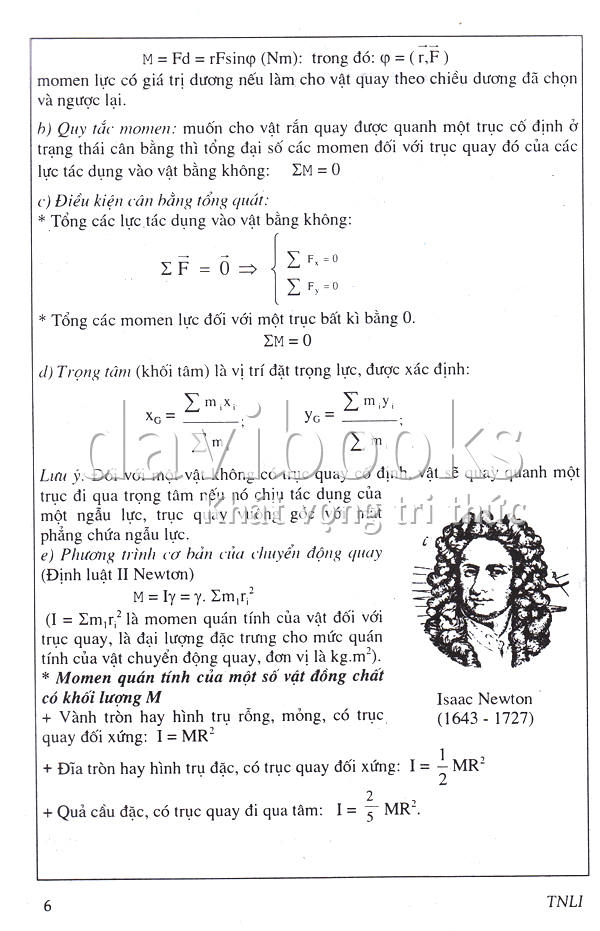 M = Fd = rFsinφ (Nm): trong đó: φ = (r⃗,F⃗)
momen lực có giá trị dương nếu làm cho vật quay theo chiều dương đã chọn
và ngược lại.
b) Quy tắc momen: muốn cho vật rắn quay được quanh một trục cố định ở
trạng thái cân bằng thì tổng đại số các momen đối với trục quay đó của các
lực tác dụng vào vật bằng không: ΣM = 0
c) Điều kiện cân bằng tổng quát:
* Tổng các lực tác dụng vào vật bằng không:
Σ F⃗ = 0⃗ ⇒ { ∑ Fₓ = 0
∑ Fᵧ = 0
* Tổng các momen lực đối với một trục bất kì bằng 0.
ΣM = 0
d) Trọng tâm (khối tâm) là vị trí đặt trọng lực, được xác định:
∑ mᵢxᵢ ∑ mᵢyᵢ
x_G = ______; y_G = ______;
∑ m ∑ m
davibooks
Lưu ý: Đối với một vật không có trục quay cố định, vật sẽ quay quanh một
trục đi qua trọng tâm nếu nó chịu tác dụng của
khát vọng tri thức
một ngẫu lực, trục quay vuông góc với mặt
phẳng chứa ngẫu lực.
e) Phương trình cơ bản của chuyển động quay
(Định luật II Newtơn)
M = Iγ = γ. Σm₁rᵢ²
(I = Σm₁rᵢ² là momen quán tính của vật đối với
trục quay, là đại lượng đặc trưng cho mức quán
tính của vật chuyển động quay, đơn vị là kg.m²).
* Momen quán tính của một số vật đồng chất
có khối lượng M
+ Vành tròn hay hình trụ rỗng, mỏng, có trục
quay đối xứng: I = MR²
Isaac Newton
(1643 - 1727)
+ Đĩa tròn hay hình trụ đặc, có trục quay đối xứng: I = 1/2 MR²
+ Quả cầu đặc, có trục quay đi qua tâm: I = 2/5 MR².
6
TNLI